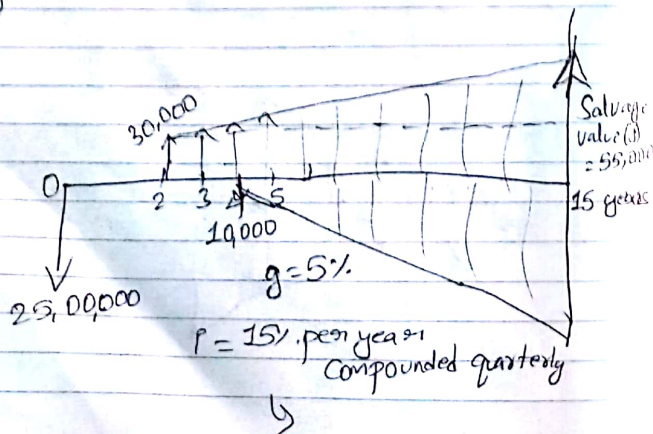 30,000
Salvage
value (S)
= 55,000
0
2 3 4 5
15 years
10,000
g = 5%
25,00,000
P = 15%. per year
compounded quarterly